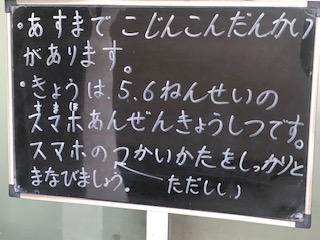 ・あすまで こじんこんだんかい
があります。
・きょうは、5.6ねんせいの
スマホあんぜんきょうしつです。
すまほ
スマホのつかいかたをしっかりと
まなびましょう。
ただしい